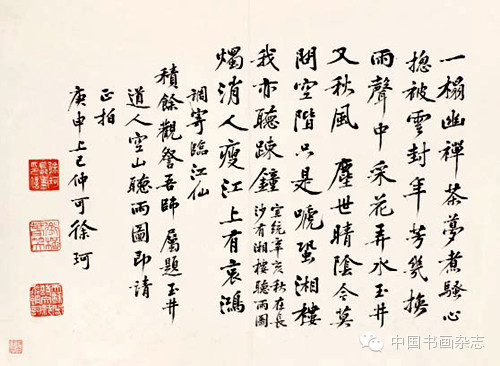 一榻幽禪茶夢煮騷心
揔被雲封年芳幾換
雨聲中采花弄水玉井
又秋風 塵世晴陰今莫
問空階只是唬蛩湘樓
我亦聽踈鐘
宣統辛亥秋在長
沙有湘樓聽雨圖
燭消人瘦江上有哀鴻
調寄臨江仙
積餘觀詧吾師 屬題玉井
道人空山聽雨圖即請
正拍
庚申上巳仲可徐珂
中国书画杂志